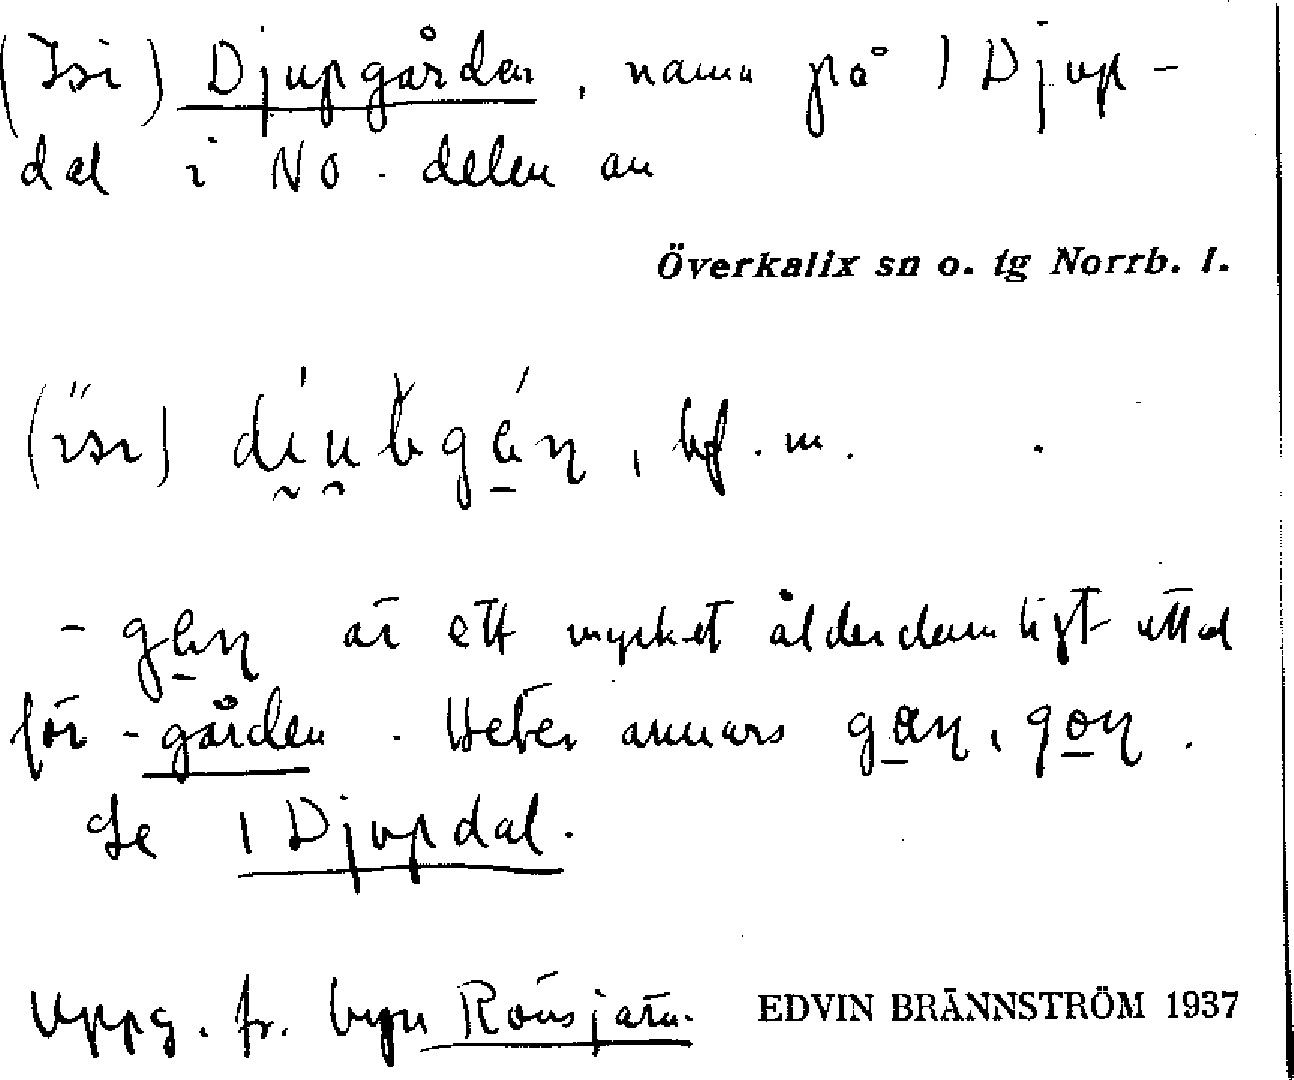 (Isi) Djupgården, namn på 1 Djup-
dal i NO. delen av
Överkalix sn o. tg Norrb. l.
hf. m.
är ett mycket ålderdomligt uttal
för -gården. Heter annars
Se 1 Djupdal.
Uppg. fr. byn Rönsjärn.
EDVIN BRÄNNSTRÖM 1937